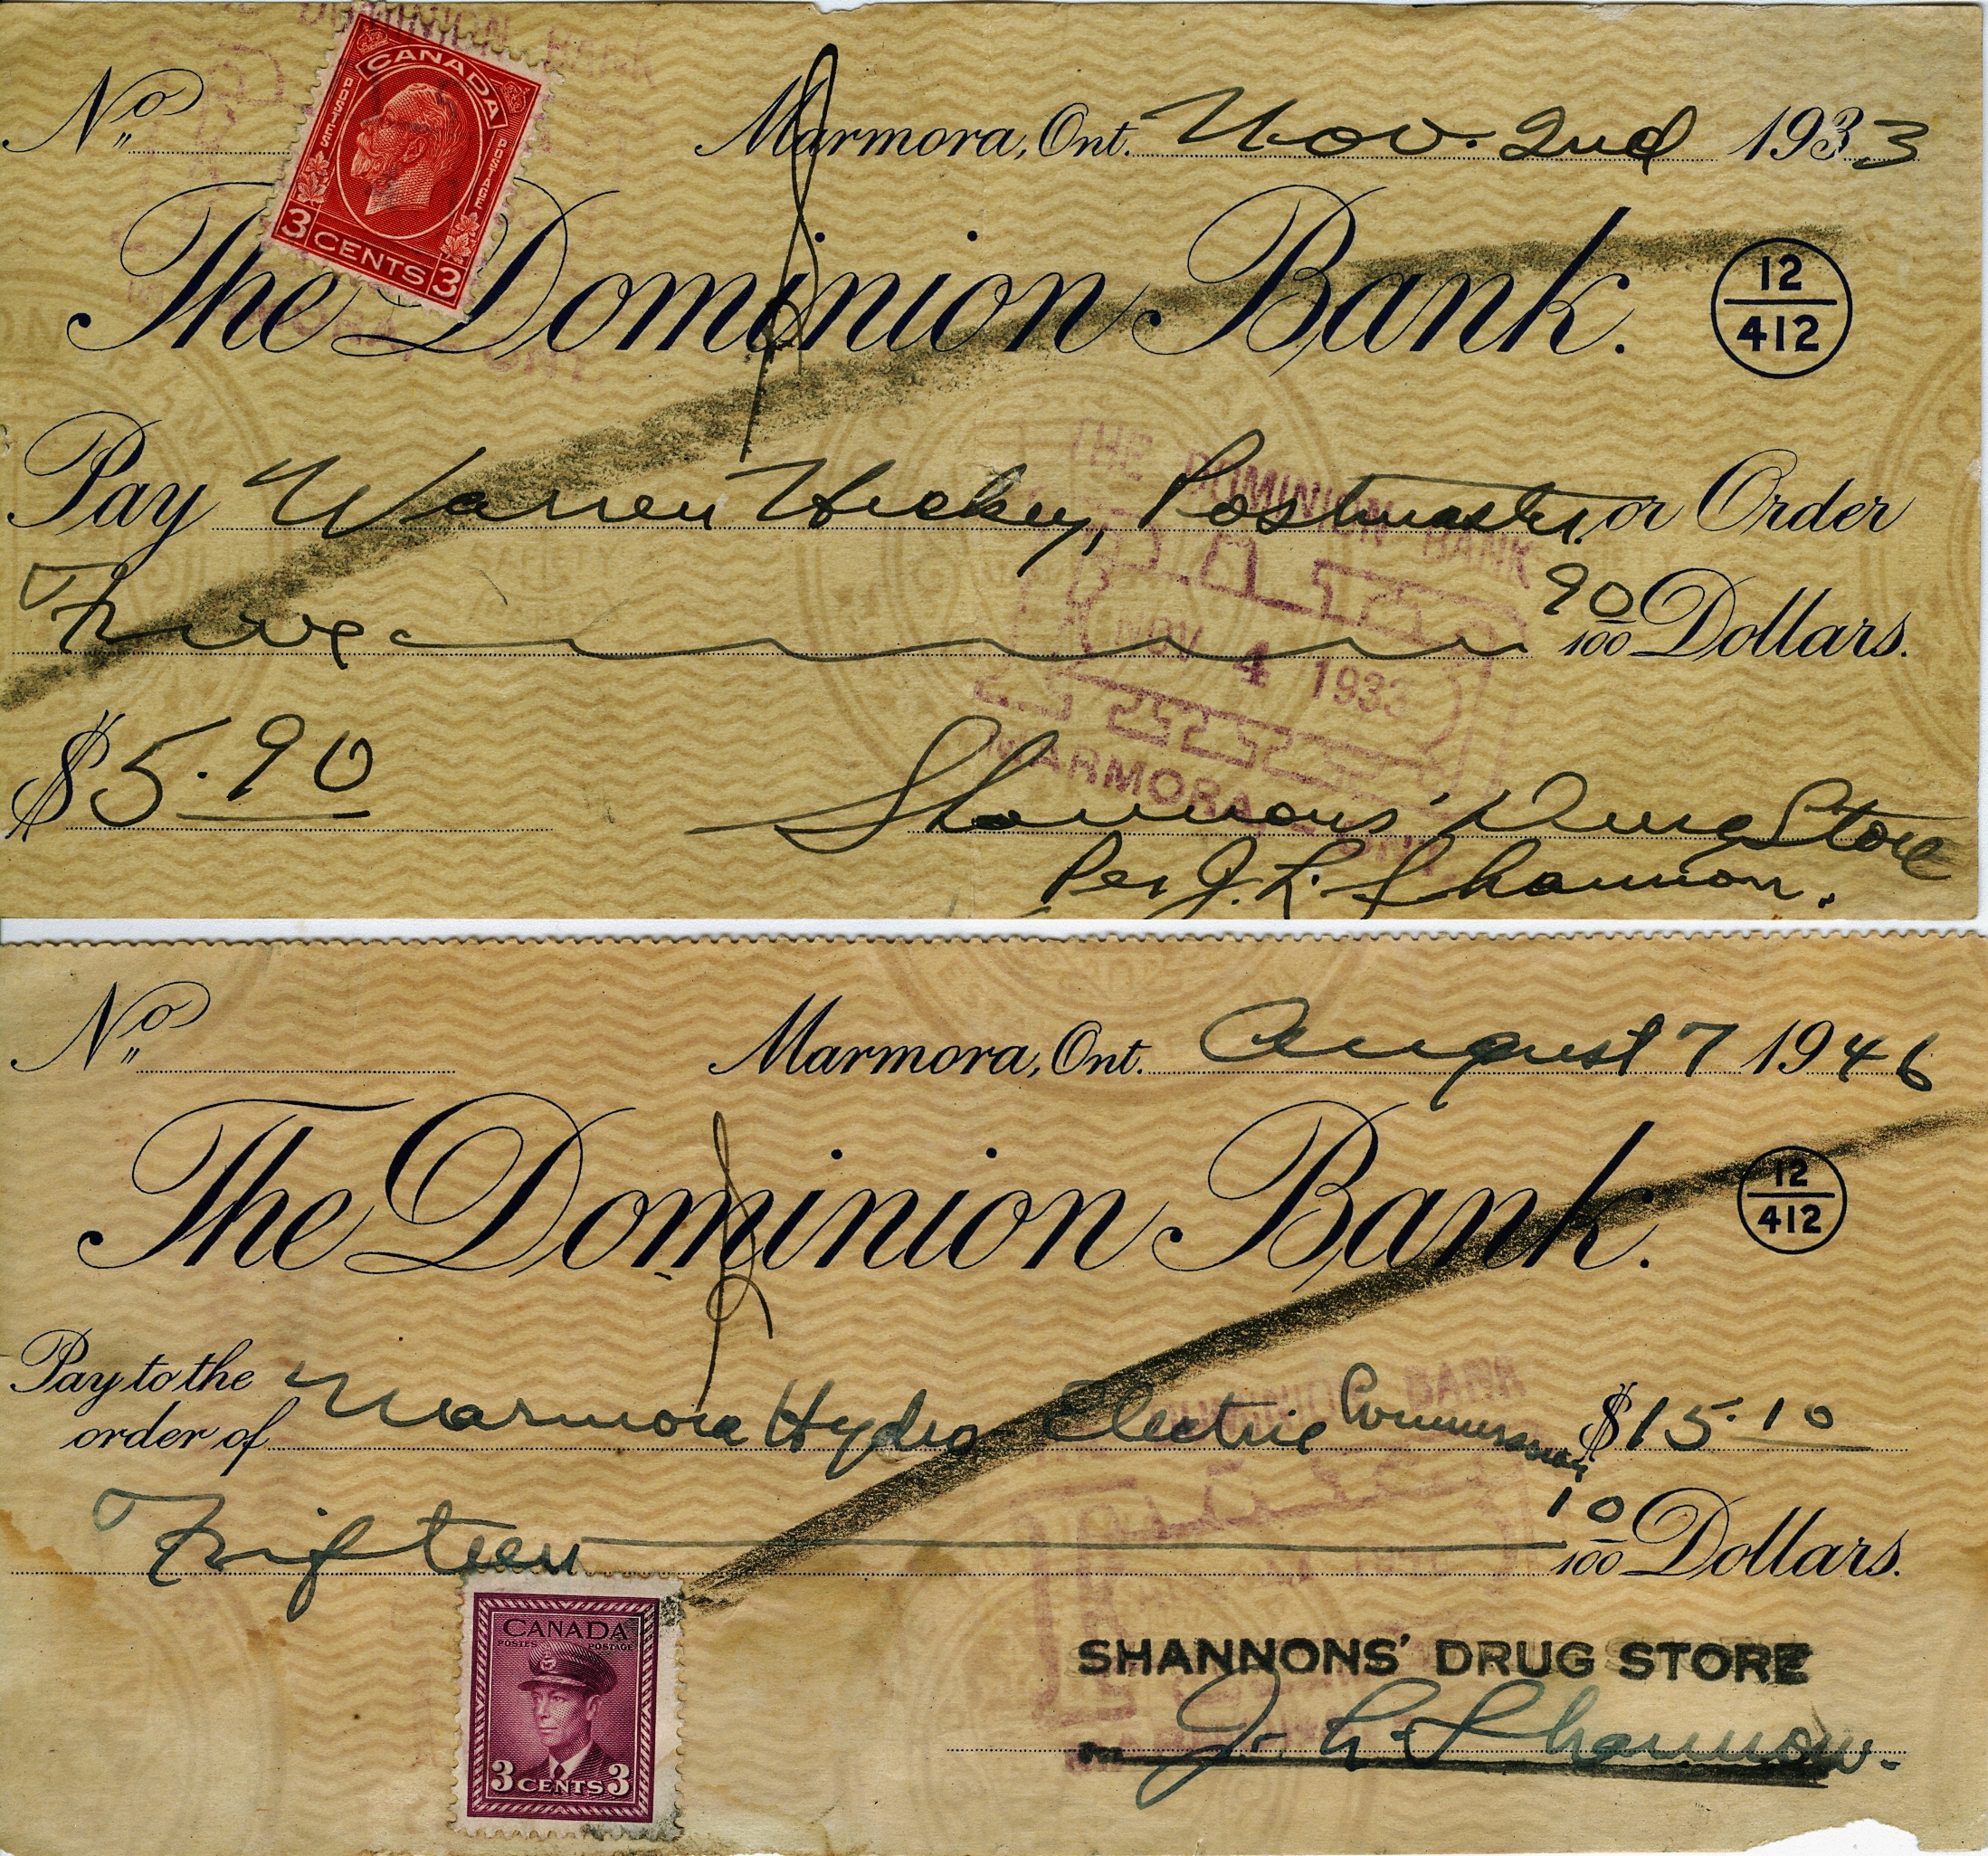 CANADA
POSTES POSTAGE
3 CENTS 3
No
Marmora, Ont. Nov. 2nd 1933
The Dominion Bank.
12
412
Pay Warren Hickey, Postmaster or Order
Five 90/100 Dollars.
$5.90
THE DOMINION BANK
PAID
NOV 4 1933
MARMORA - ONT
Shannons' Drug Store
Per J. L. Shannon.
No
Marmora, Ont. August 7 1946
The Dominion Bank.
12
412
Pay to the order of Marmora Hydro Electric Commission $15.10
Fifteen 10/100 Dollars.
CANADA
POSTES POSTAGE
3 CENTS 3
SHANNONS' DRUG STORE
Per J. L. Shannon.